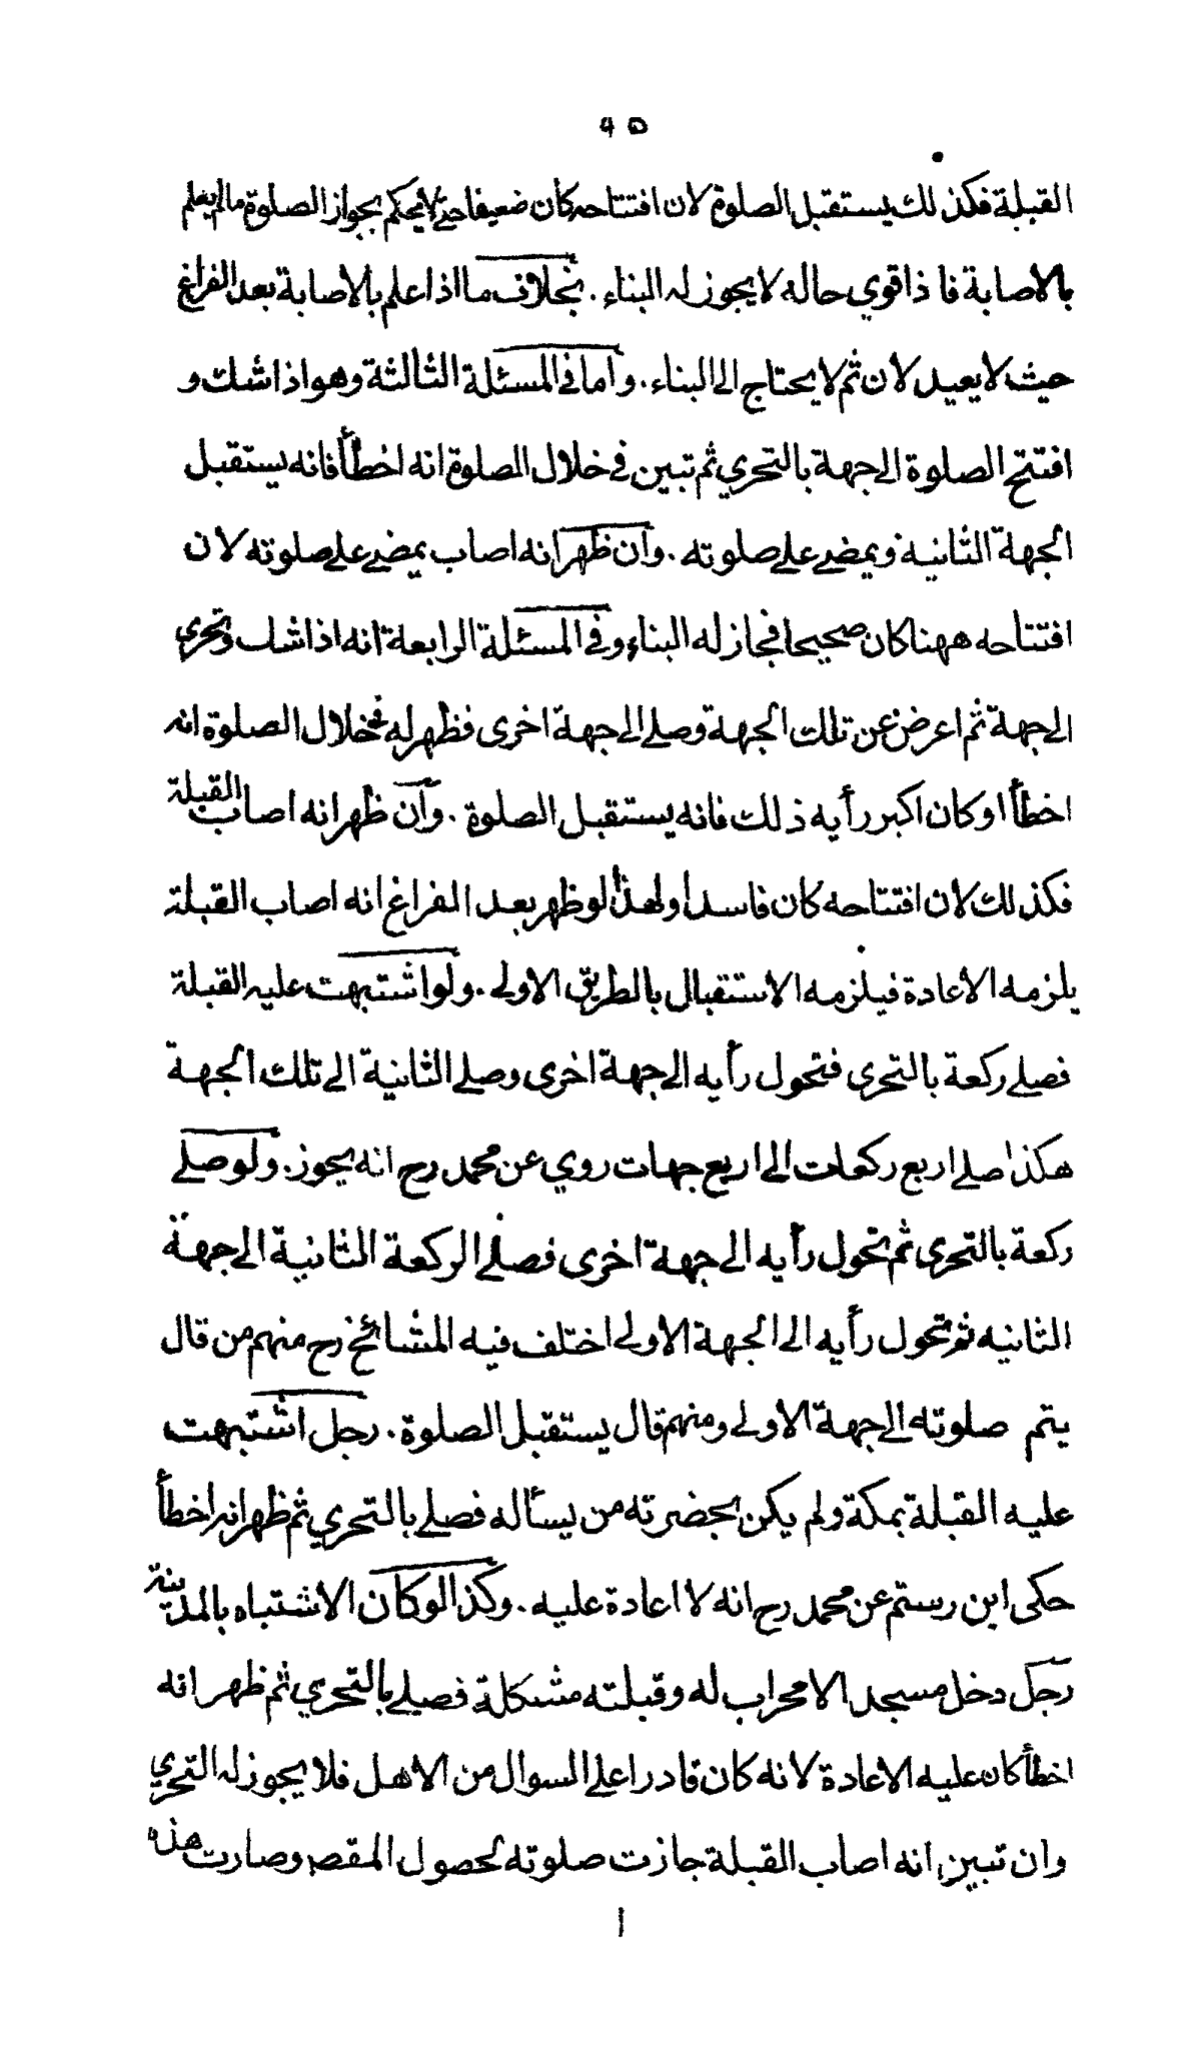 ٩٥
القبلة فكذلك يستقبل الصلوة لان افتتاحه كان ضعيفا حتى لا يحكم بجواز الصلوة ما لم يعلم
بالاصابة فاذا قوي حاله لا يجوز له البناء . بخلاف ما اذا علم بالاصابة بعد الفراغ
حيث لا يعيد لان ثم لا يحتاج الى البناء . واما في المسئلة الثالثة وهو اذا شك و
افتتح الصلوة الى جهة بالتحري ثم تبين في خلال الصلوة انه اخطأ فانه يستقبل
الجهة الثانية ويمضي على صلوته . وان ظهر انه اصاب يمضي على صلوته لان
افتتاحه ههنا كان صحيحا فجاز له البناء وفي المسئلة الرابعة انه اذا شك وتحري
الى جهة ثم اعرض عن تلك الجهة وصلى الى جهة اخرى فظهر له في خلال الصلوة انه
اخطأ او كان اكبر رأيه ذلك فانه يستقبل الصلوة . وان ظهر انه اصاب القبلة
فكذلك لان افتتاحه كان فاسدا ولهذا لو ظهر بعد الفراغ انه اصاب القبلة
يلزمه الاعادة فيلزمه الاستقبال بالطريق الاولى . ولو اشتبهت عليه القبلة
فصلى ركعة بالتحرى فتحول رأيه الى جهة اخرى وصلى الثانية الى تلك الجهة
هكذا صلى اربع ركعات الى اربع جهات روي عن محمد رح انه يجوز . ولو صلى
ركعة بالتحرى ثم تحول رأيه الى جهة اخرى فصلى الركعة الثانية الى جهة
الثانيه ثم تحول رأيه الى الجهة الاولى اختلف فيه المشائخ رح منهم من قال
يتم صلوته الى جهة الاولى ومنهم قال يستقبل الصلوة . رجل اشتبهت
عليه القبلة بمكة ولم يكن بحضرته من يسأله فصلى بالتحري ثم ظهر انه اخطأ
حكى ابن رستم عن محمد رح انه لا اعادة عليه . وكذا لو كان الاشتباه بالمدينة
رجل دخل مسجد الا محراب له وقبلته مشكلة فصلى بالتحري ثم ظهر انه
اخطأ كان عليه الاعادة لانه كان قادرا على السوال من الاهل فلا يجوز له التحري
وان تبين انه اصاب القبلة جازت صلوته لحصول المقصد وصارت هذه
ا